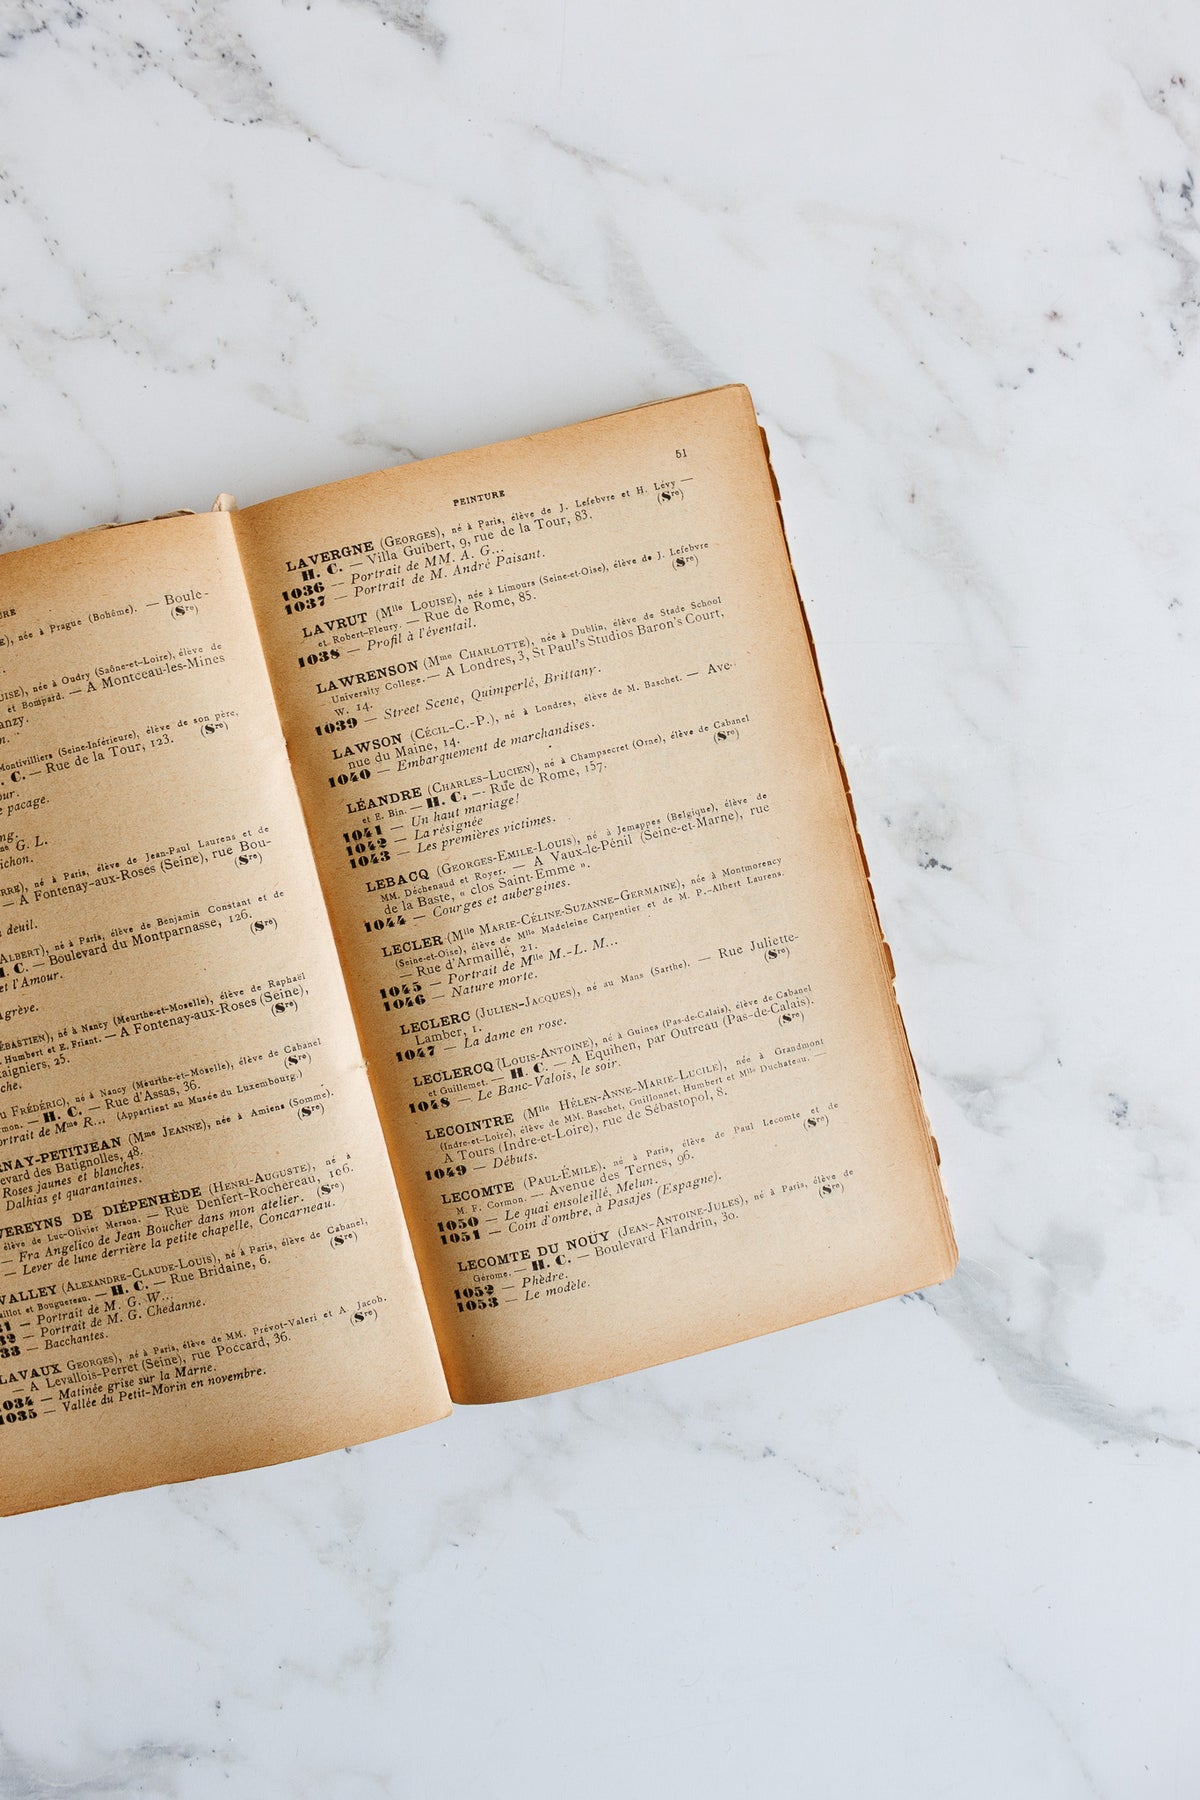 URE
E), née à Prague (Bohême). — Boule-
(Sre)
UISE), née à Oudry (Saône-et-Loire), élève de
et Bompard. — A Montceau-les-Mines
anzy.
Montivilliers (Seine-Inférieure), élève de son père,
. C. — Rue de la Tour, 123. (Sre)
our.
e pacage.
ng.
me G. L.
ichon.
RRE), né à Paris, élève de Jean-Paul Laurens et de
— A Fontenay-aux-Roses (Seine), rue Bou-
(Sre)
deuil.
ALBERT), né à Paris, élève de Benjamin Constant et de
H. C. — Boulevard du Montparnasse, 126. (Sre)
et l'Amour.
Agrève.
ÉBASTIEN), né à Nancy (Meurthe-et-Moselle), élève de Raphaël
Humbert et E. Friant. — A Fontenay-aux-Roses (Seine),
aigniers, 25. (Sre)
che.
U FRÉDÉRIC), né à Nancy (Meurthe-et-Moselle), élève de Cabanel
mon. — H. C. — Rue d'Assas, 36. (Sre)
ortrait de Mme R... (Appartient au Musée du Luxembourg.)
RNAY-PETITJEAN (Mme JEANNE), née à Amiens (Somme).
evard des Batignolles, 48. (Sre)
Roses jaunes et blanches.
Dalhias et quarantaines.
VEREYNS DE DIÉPENHÈDE (HENRI-AUGUSTE), né à
élève de Luc-Olivier Merson. — Rue Denfert-Rochereau, 106.
— Fra Angelico de Jean Boucher dans mon atelier. (Sre)
— Lever de lune derrière la petite chapelle, Concarneau.
VALLEY (ALEXANDRE-CLAUDE-LOUIS), né à Paris, élève de Cabanel,
aillot et Bouguereau. — H. C. — Rue Bridaine, 6. (Sre)
31 — Portrait de M. G. W...
32 — Portrait de M. G. Chedanne.
33 — Bacchantes.
LAVAUX GEORGES), né à Paris, élève de MM. Prévot-Valeri et A. Jacob.
— A Levallois-Perret (Seine), rue Poccard, 36. (Sre)
1034 — Matinée grise sur la Marne.
1035 — Vallée du Petit-Morin en novembre.
PEINTURE 51
LAVERGNE (GEORGES), né à Paris, élève de J. Lefebvre et H. Lévy —
H. C. — Villa Guibert, 9, rue de la Tour, 83. (Sre)
1036 — Portrait de MM. A. G...
1037 — Portrait de M. André Paisant.
LAVRUT (Mlle LOUISE), née à Limours (Seine-et-Oise), élève de J. Lefebvre
et Robert-Fleury. — Rue de Rome, 85. (Sre)
1038 — Profil à l'éventail.
LAWRENSON (Mme CHARLOTTE), née à Dublin, élève de Stade School
University College. — A Londres, 3, St Paul's Studios Baron's Court,
W. 14.
1039 — Street Scene, Quimperlé, Brittany.
LAWSON (CÉCIL-C.-P.), né à Londres, élève de M. Baschet. — Ave-
nue du Maine, 14.
1040 — Embarquement de marchandises.
LÉANDRE (CHARLES-LUCIEN), né à Champsecret (Orne), élève de Cabanel
et E. Bin. — H. C. — Rue de Rome, 157. (Sre)
1041 — Un haut mariage!
1042 — La résignée
1043 — Les premières victimes.
LEBACQ (GEORGES-EMILE-LOUIS), né à Jemappes (Belgique), élève de
MM. Déchenaud et Royer. — A Vaux-le-Pénil (Seine-et-Marne), rue
de la Baste, « clos Saint-Emme ».
1044 — Courges et aubergines.
LECLER (Mlle MARIE-CÉLINE-SUZANNE-GERMAINE), née à Montmorency
(Seine-et-Oise), élève de Mlle Madeleine Carpentier et de M. P.-Albert Laurens.
— Rue d'Armaillé, 21.
1045 — Portrait de Mlle M.-L. M...
1046 — Nature morte.
LECLERC (JULIEN-JACQUES), né au Mans (Sarthe). — Rue Juliette-
Lamber, 1. (Sre)
1047 — La dame en rose.
LECLERCQ (LOUIS-ANTOINE), né à Guines (Pas-de-Calais), élève de Cabanel
et Guillemet. — H. C. — A Equihen, par Outreau (Pas-de-Calais).
1048 — Le Banc-Valois, le soir. (Sre)
LECOINTRE (Mlle HÉLEN-ANNE-MARIE-LUCILE), née à Grandmont
(Indre-et-Loire), élève de MM. Baschet, Guillonnet, Humbert et Mlle Duchateau. —
A Tours (Indre-et-Loire), rue de Sébastopol, 8.
1049 — Débuts.
LECOMTE (PAUL-ÉMILE), né à Paris, élève de Paul Lecomte et de
M. F. Cormon. — Avenue des Ternes, 96. (Sre)
1050 — Le quai ensoleillé, Melun.
1051 — Coin d'ombre, à Pasajes (Espagne).
LECOMTE DU NOÜY (JEAN-ANTOINE-JULES), né à Paris, élève de
Gérome. — H. C. — Boulevard Flandrin, 30. (Sre)
1052 — Phèdre.
1053 — Le modèle.